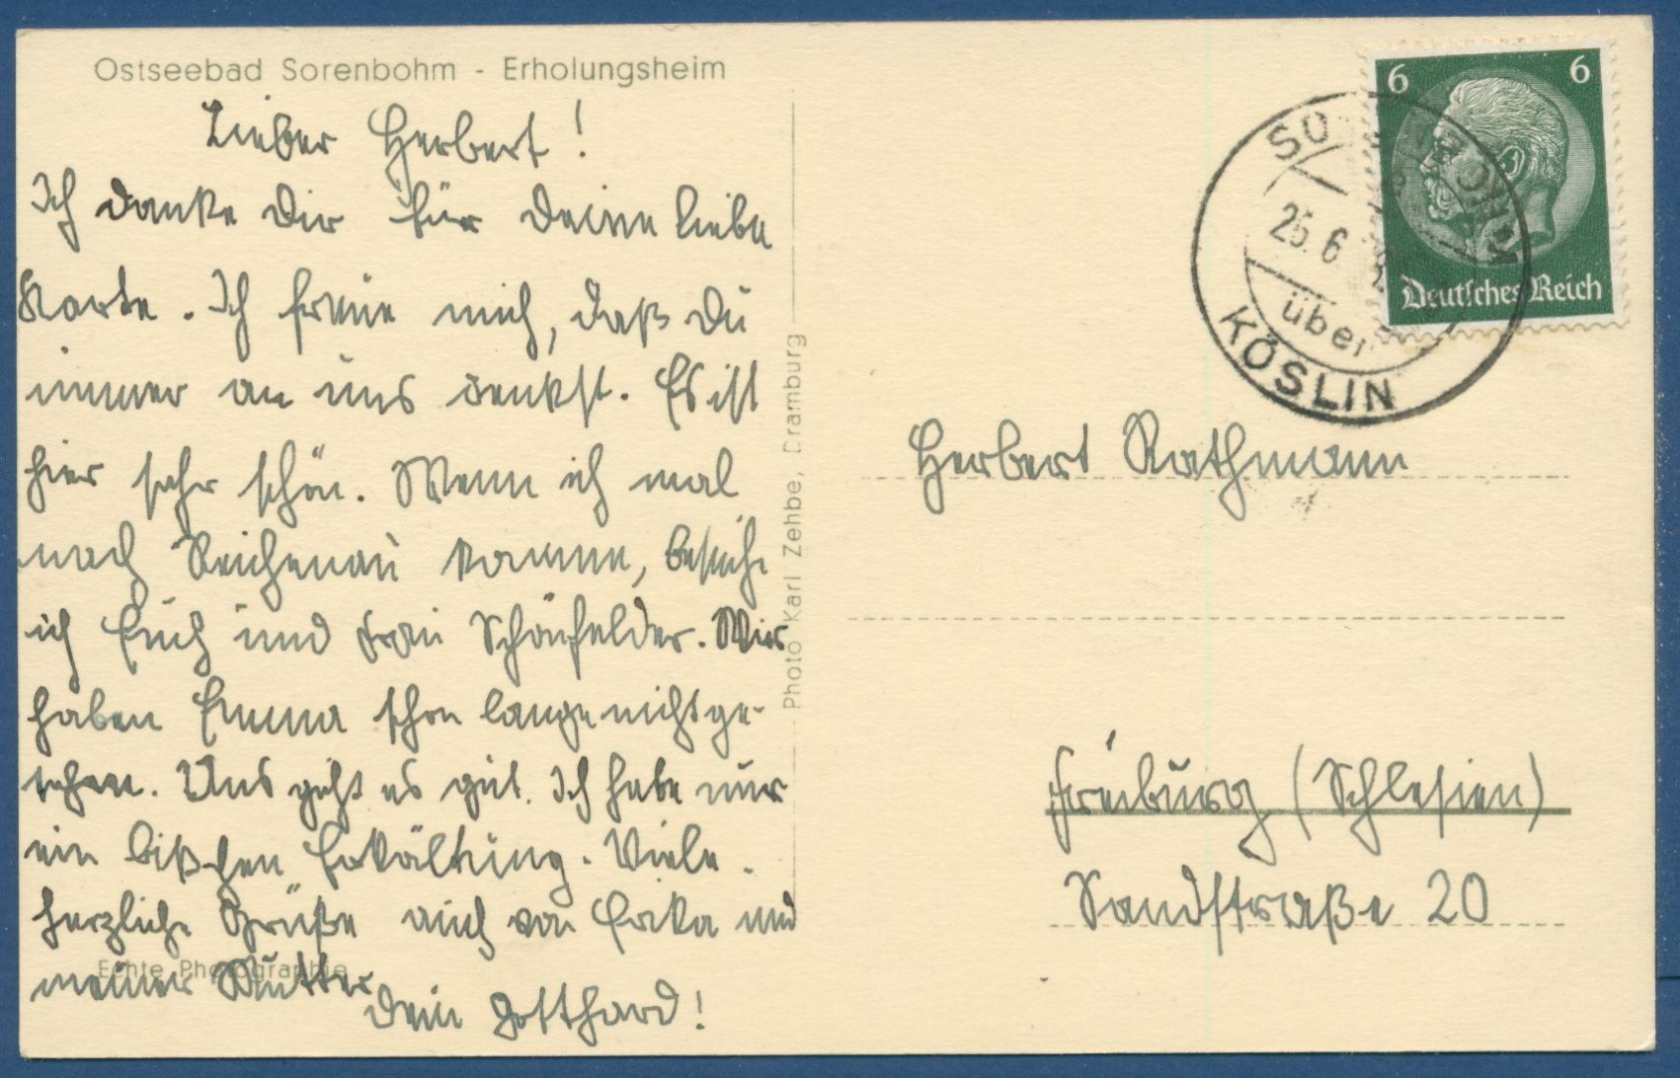 Ostseebad Sorenbohm - Erholungsheim
Lieber Herbert!
Ich danke Dir für Deine liebe
Karte. Ich freue mich, daß Du
immer an uns denkst. Es ist
hier sehr schön. Wenn ich mal
nach Reichenau komme, besuche
ich Euch und Frau Schönfelder. Wir
haben Emma schon lange nicht ge-
sehen. Uns geht es gut. Ich habe nur
ein bißchen Erkältung. Viele
herzliche Grüße auch von Erika und
meiner Mutter
Dein Gotthard!
Echte Photographie
Photo Karl Zehbe, Dramburg
6 6
Deutsches Reich
25.6
über
KÖSLIN
Herbert Rathmann
Freiburg (Schlesien)
Sandstraße 20